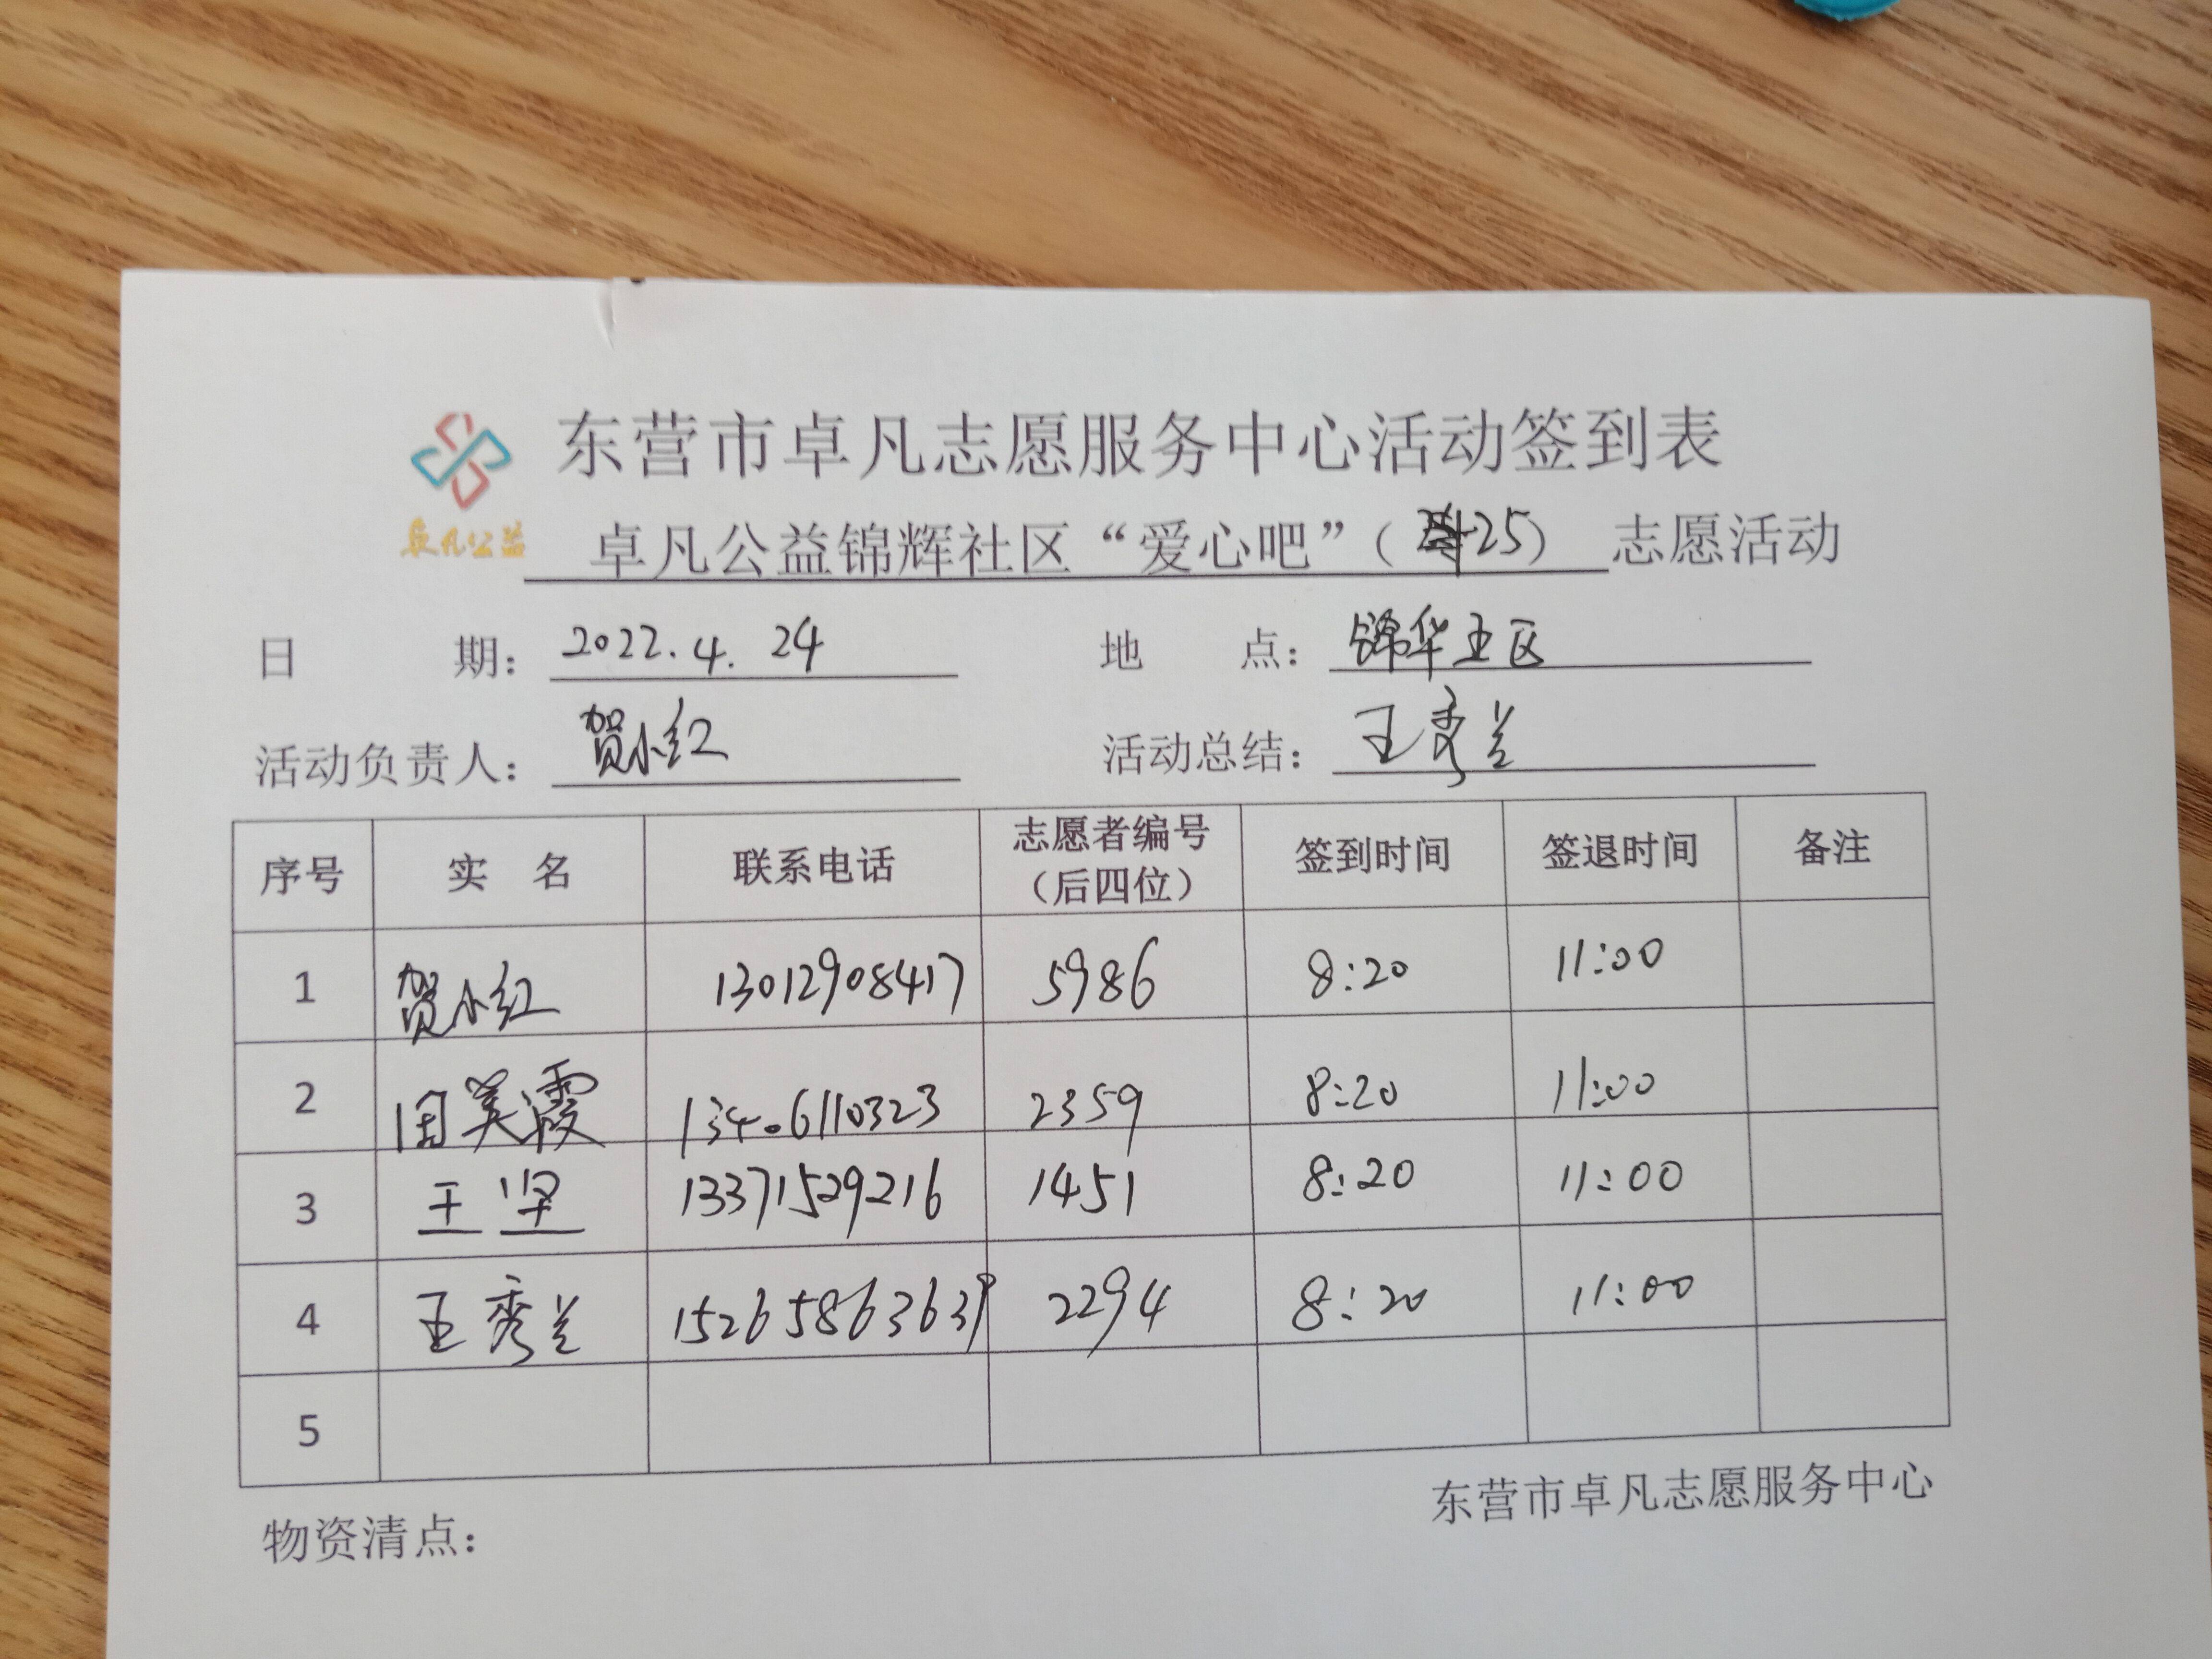 东营市卓凡志愿服务中心活动签到表
卓凡公益
卓凡公益锦辉社区“爱心吧”（25）志愿活动
日 期：2022.4.24 地 点：锦华五区
活动负责人：贺小红 活动总结：王秀兰
序号 实 名 联系电话 志愿者编号（后四位） 签到时间 签退时间 备注
1 贺小红 13012908417 5986 8:20 11:00
2 田美霞 13406110323 2359 8:20 11:00
3 王坚 13371529216 1451 8:20 11:00
4 王秀兰 15265863639 2294 8:20 11:00
5
物资清点：
东营市卓凡志愿服务中心